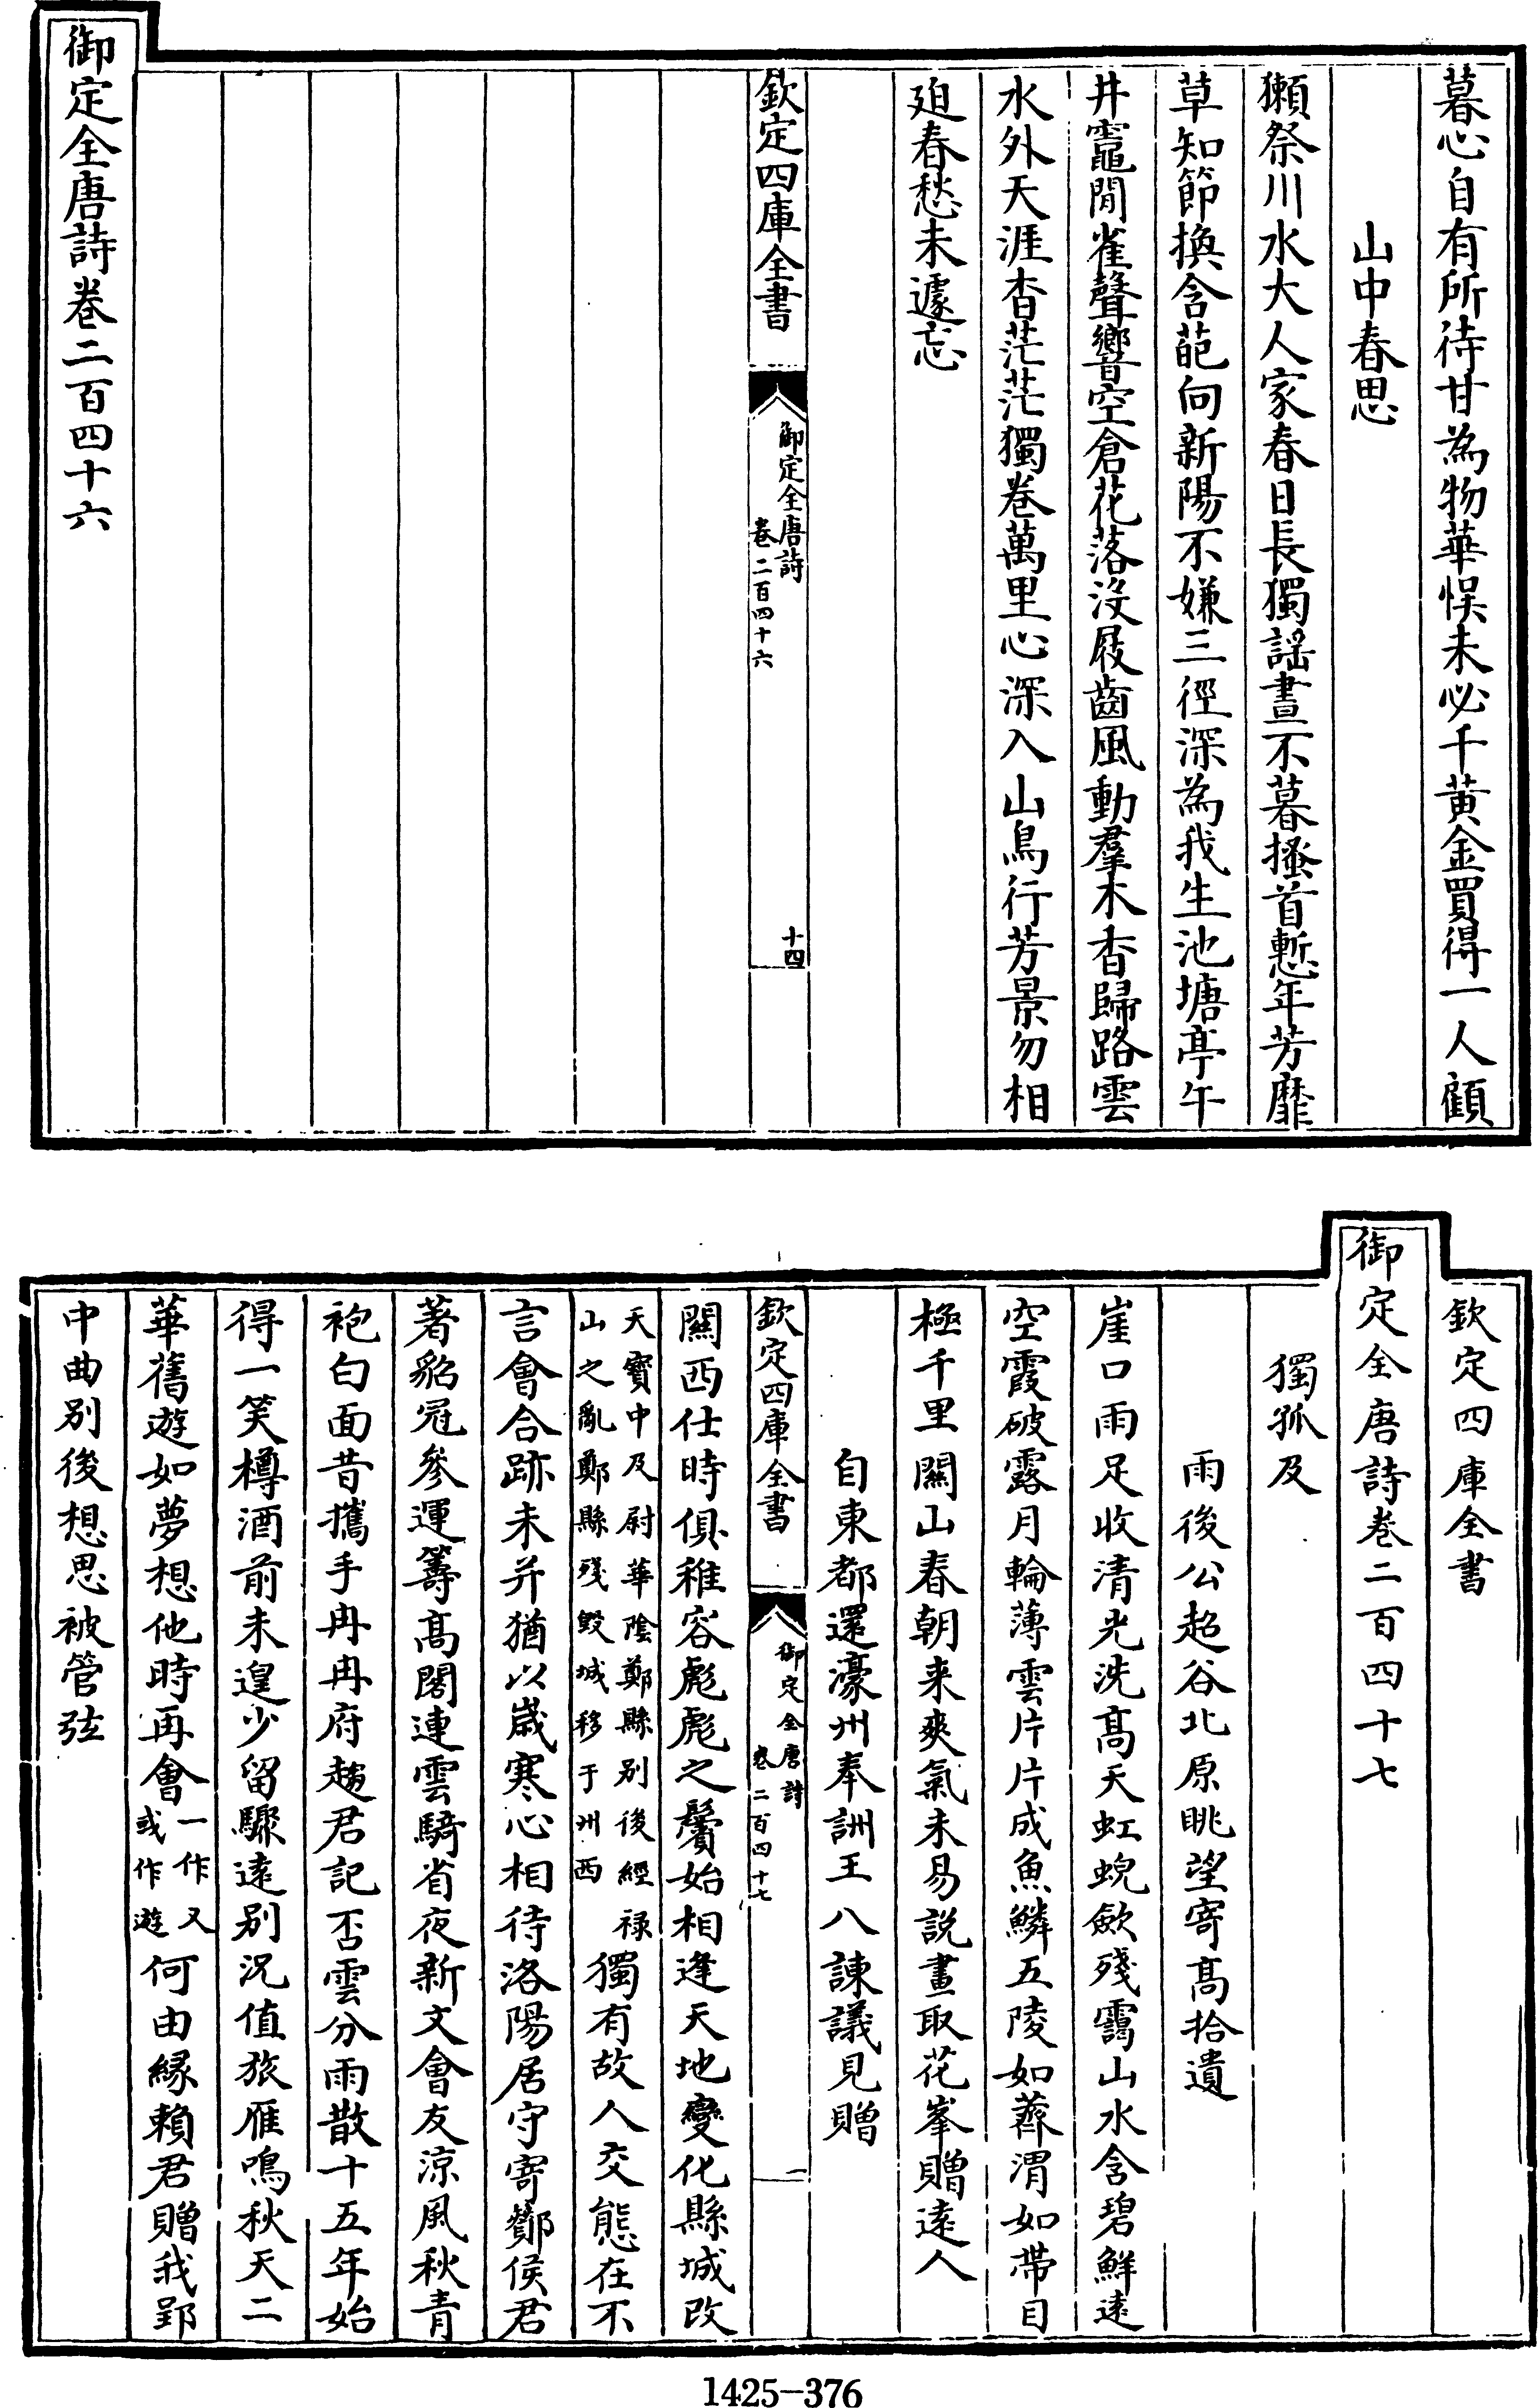 暮心自有所待甘為物華悞未必千黄金買得一人顧
山中春思
獺祭川水大人家春日長獨謡晝不暮搔首慙年芳靡
草知節換含葩向新陽不嫌三徑深為我生池塘亭午
井竈閒雀聲響空倉花落没屐齒風動羣木香歸路雲
水外天涯杳茫茫獨卷萬里心深入山鳥行芳景勿相
廹春愁未遽忘
欽定四庫全書
御定全唐詩
卷二百四十六
十四
御定全唐詩卷二百四十六
欽定四庫全書
御定全唐詩卷二百四十七
獨孤及
雨後公超谷北原眺望寄高拾遺
崖口雨足收清光洗髙天虹蜺歛殘靄山水含碧鮮逺
空霞破露月輪薄雲片片成魚鱗五陵如薺渭如帶目
極千里闗山春朝来爽氣未易說畫取花峯贈逺人
自東都還濠州奉詶王八諫議見贈
欽定四庫全書
御定全唐詩
卷二百四十七
一
闗西仕時俱稚容彪彪之鬢始相逢天地變化縣城改
天寶中及尉華陰鄭縣别後經禄
山之亂鄭縣殘毁城移于州西
獨有故人交態在不
言會合跡未并猶以歲寒心相待洛陽居守寄酇侯君
著貂冠參運籌髙閣連雲騎省夜新文會友涼風秋青
袍白面昔攜手冉冉府趨君記否雲分雨散十五年始
得一笑樽酒前未遑少留驟逺别況值旅雁鳴秋天二
華舊遊如夢想他時再會
一作又
或作遊
何由縁頼君贈我郢
中曲别後想思被管弦
1425-376